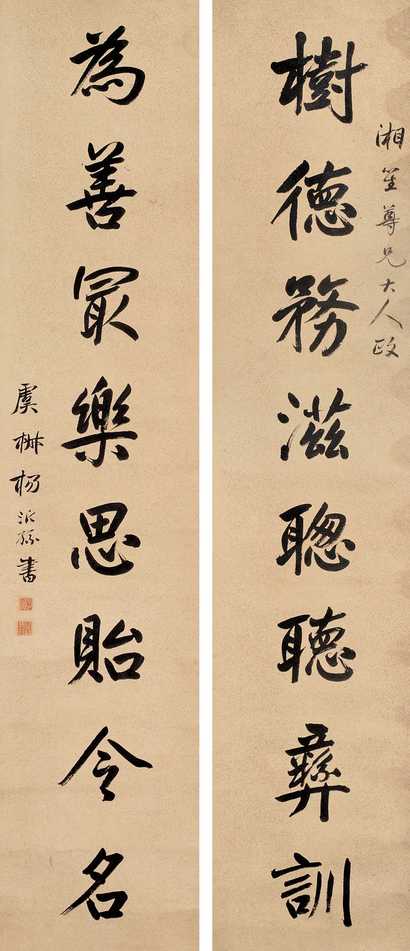 湘笙尊兄大人政
樹德務滋聰聽彝訓
為善冣樂思貽令名
虞楙楊沂孫書